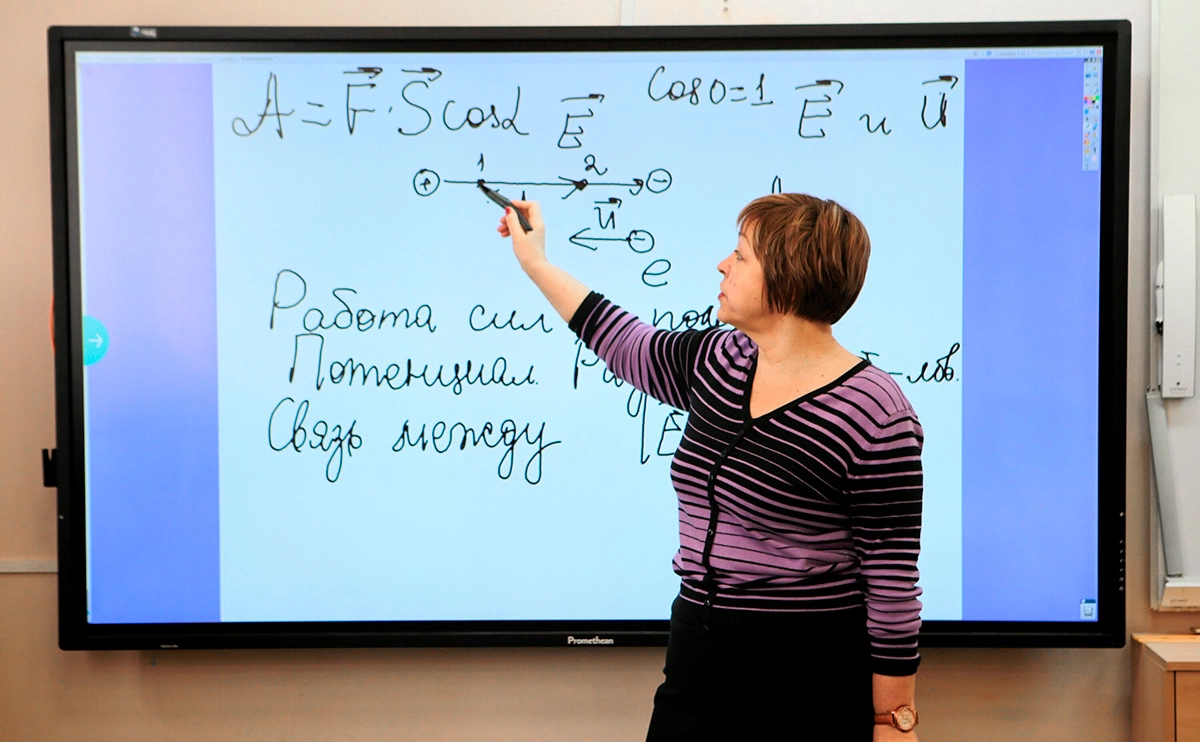 A = F · S cosα E cos 0 = 1 E и u
1 2
+ −
u −
e
Работа сил
Потенциал. -лов.
Связь между E
Promethean